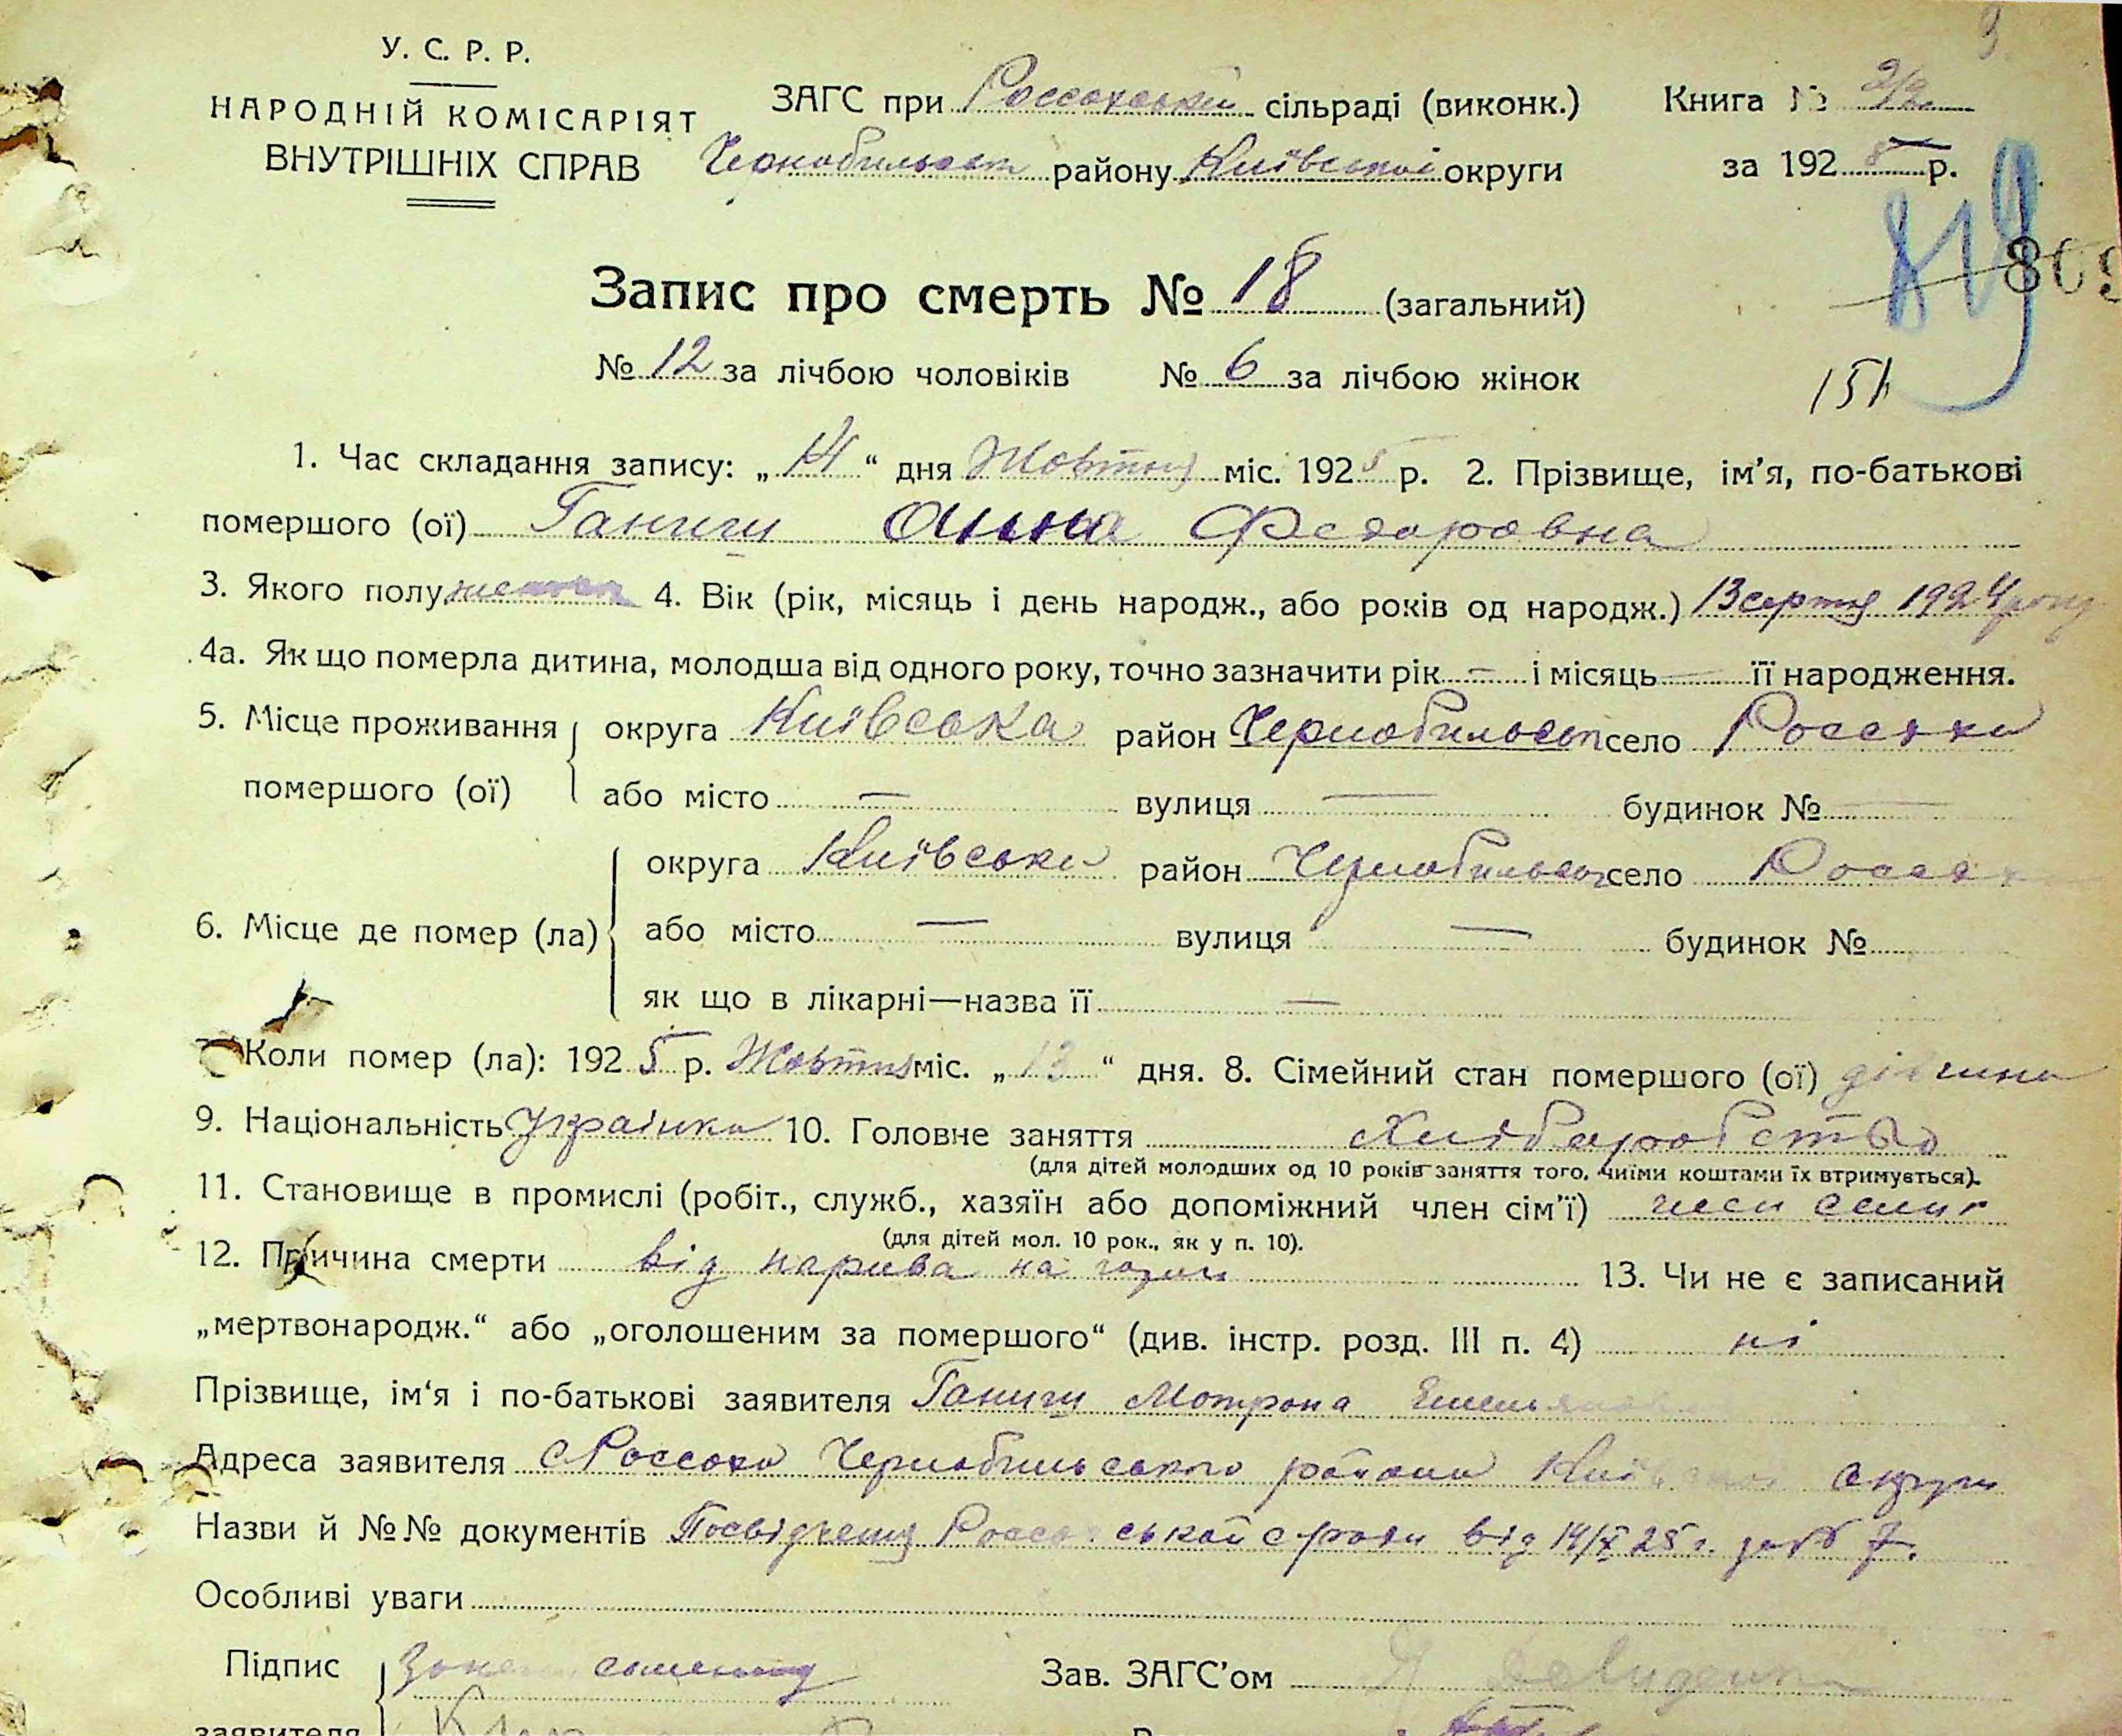 У. С. Р. Р.
НАРОДНІЙ КОМІСАРІЯТ
ВНУТРІШНІХ СПРАВ
ЗАГС при Россохській сільраді (виконк.)
района Київської округи
Книга № 2/2
за 1925 р.
809
151
Запис про смерть № 18 (загальний)
№ 12 за лічбою чоловіків № 6 за лічбою жінок
1. Час складання запису: „14“ дня Жовтня міс. 1925 р. 2. Прізвище, ім’я, по-батькові
помершого (ої) Ганичи Анна Федоровна
3. Якого полу 4. Вік (рік, місяць і день народж., або років од народж.) 13 серпня 1924 року
4а. Як що померла дитина, молодша від одного року, точно зазначити рік — і місяць — її народження.
5. Місце проживання помершого (ої) округа Київська район Чернобильськ село Россохи
або місто — вулиця — будинок № —
6. Місце де помер (ла) округа Київська район Чернобильськ село Россохи
або місто — вулиця — будинок №
як що в лікарні—назва її —
Коли помер (ла): 1925 р. Жовтня міс. „13“ дня. 8. Сімейний стан помершого (ої) дівчина
9. Національність Украінка 10. Головне заняття Хліборобство
(для дітей молодших од 10 років заняття того, чиїми коштами їх втримується).
11. Становище в промислі (робіт., служб., хазяїн або допоміжний член сім’ї) член семьи
(для дітей мол. 10 рок., як у п. 10).
12. Причина смерти від нарива на 13. Чи не є записаний
„мертвонародж.“ або „оголошеним за помершого“ (див. інстр. розд. III п. 4) ні
Прізвище, ім‘я і по-батькові заявителя Ганичи Мотрона
Адреса заявителя с Россохи Чернобильського района округи
Назви й №№ документів Посвідченя ської с ради від 14/X 25 г. за № 7.
Особливі уваги
Підпис
заявителя
Зав. ЗАГС’ом